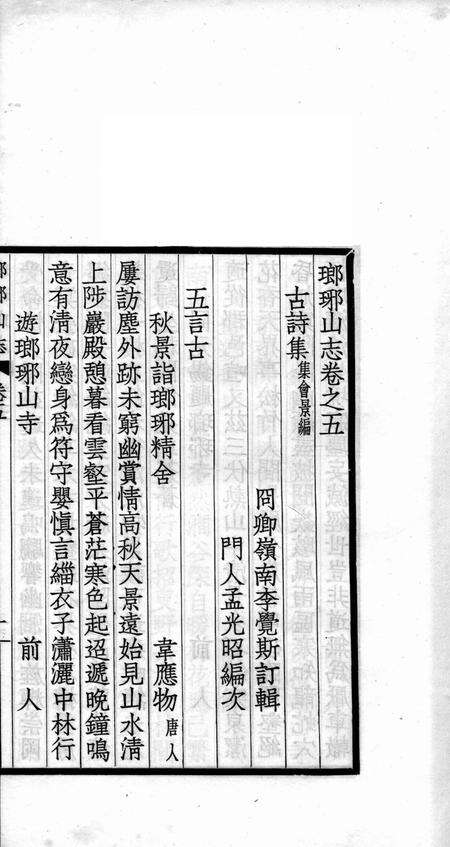 瑯琊山志卷之五
古詩集集會景編
冏卿嶺南李覺斯訂輯
門人孟光昭編次
五言古
秋景詣瑯琊精舍　韋應物唐人
屢訪塵外跡未窮幽賞情高秋天景遠始見山水清
上陟巖殿憩暮看雲壑平蒼茫寒色起迢遞晚鐘鳴
意有清夜戀身為符守嬰慎言緇衣子瀟灑中林行
遊瑯琊山寺　前人